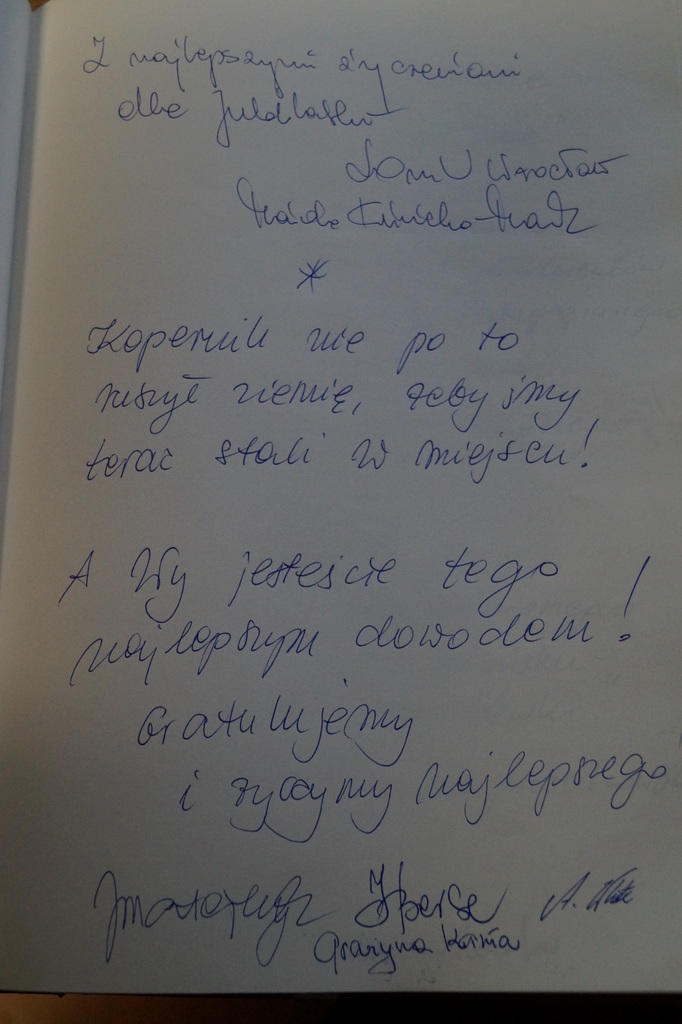 Z najlepszymi życzeniami
dla Jubilatki
Wrocław
*
Kopernik nie po to
ruszył ziemię, żebyśmy
teraz stali w miejscu!
A Wy jesteście tego
najlepszym dowodem!
Gratulujemy
i życzymy najlepszego
Grażyna